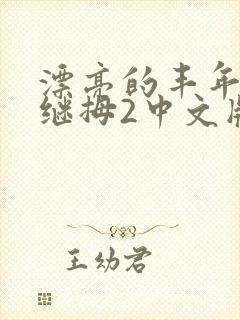 漂亮的丰年
继拇2中文版
王幼君